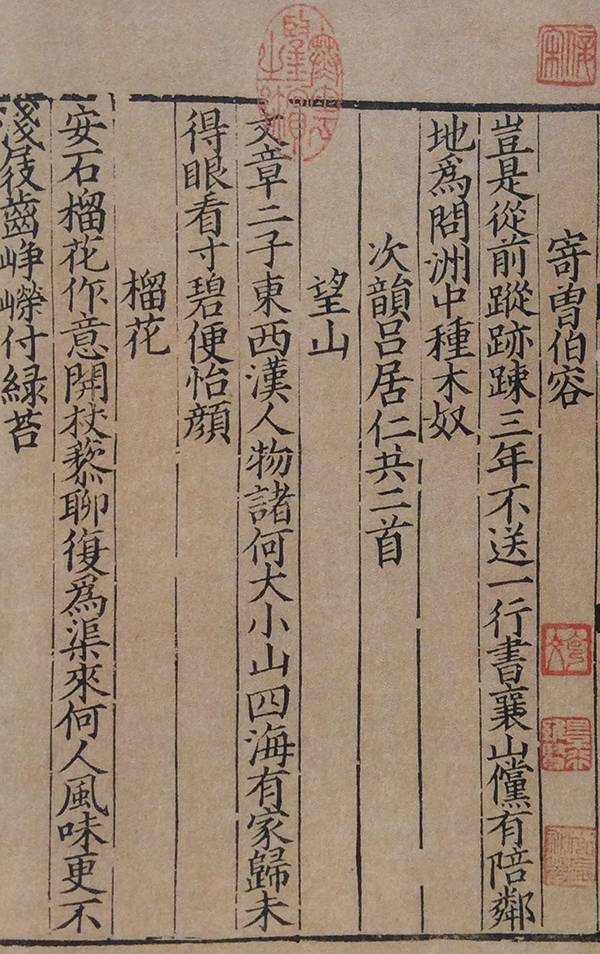 寄曾伯容
豈是從前蹤跡踈三年不送一行書襄山儻有陪鄰
地爲問洲中種木奴
次韻呂居仁共二首
望山
文章二子東西漢人物諸何大小山四海有家歸未
得眼看寸碧便怡顔
榴花
安石榴花作意開杖藜聊復爲渠來何人風味更不
淺屐齒崢嶸付緑苔